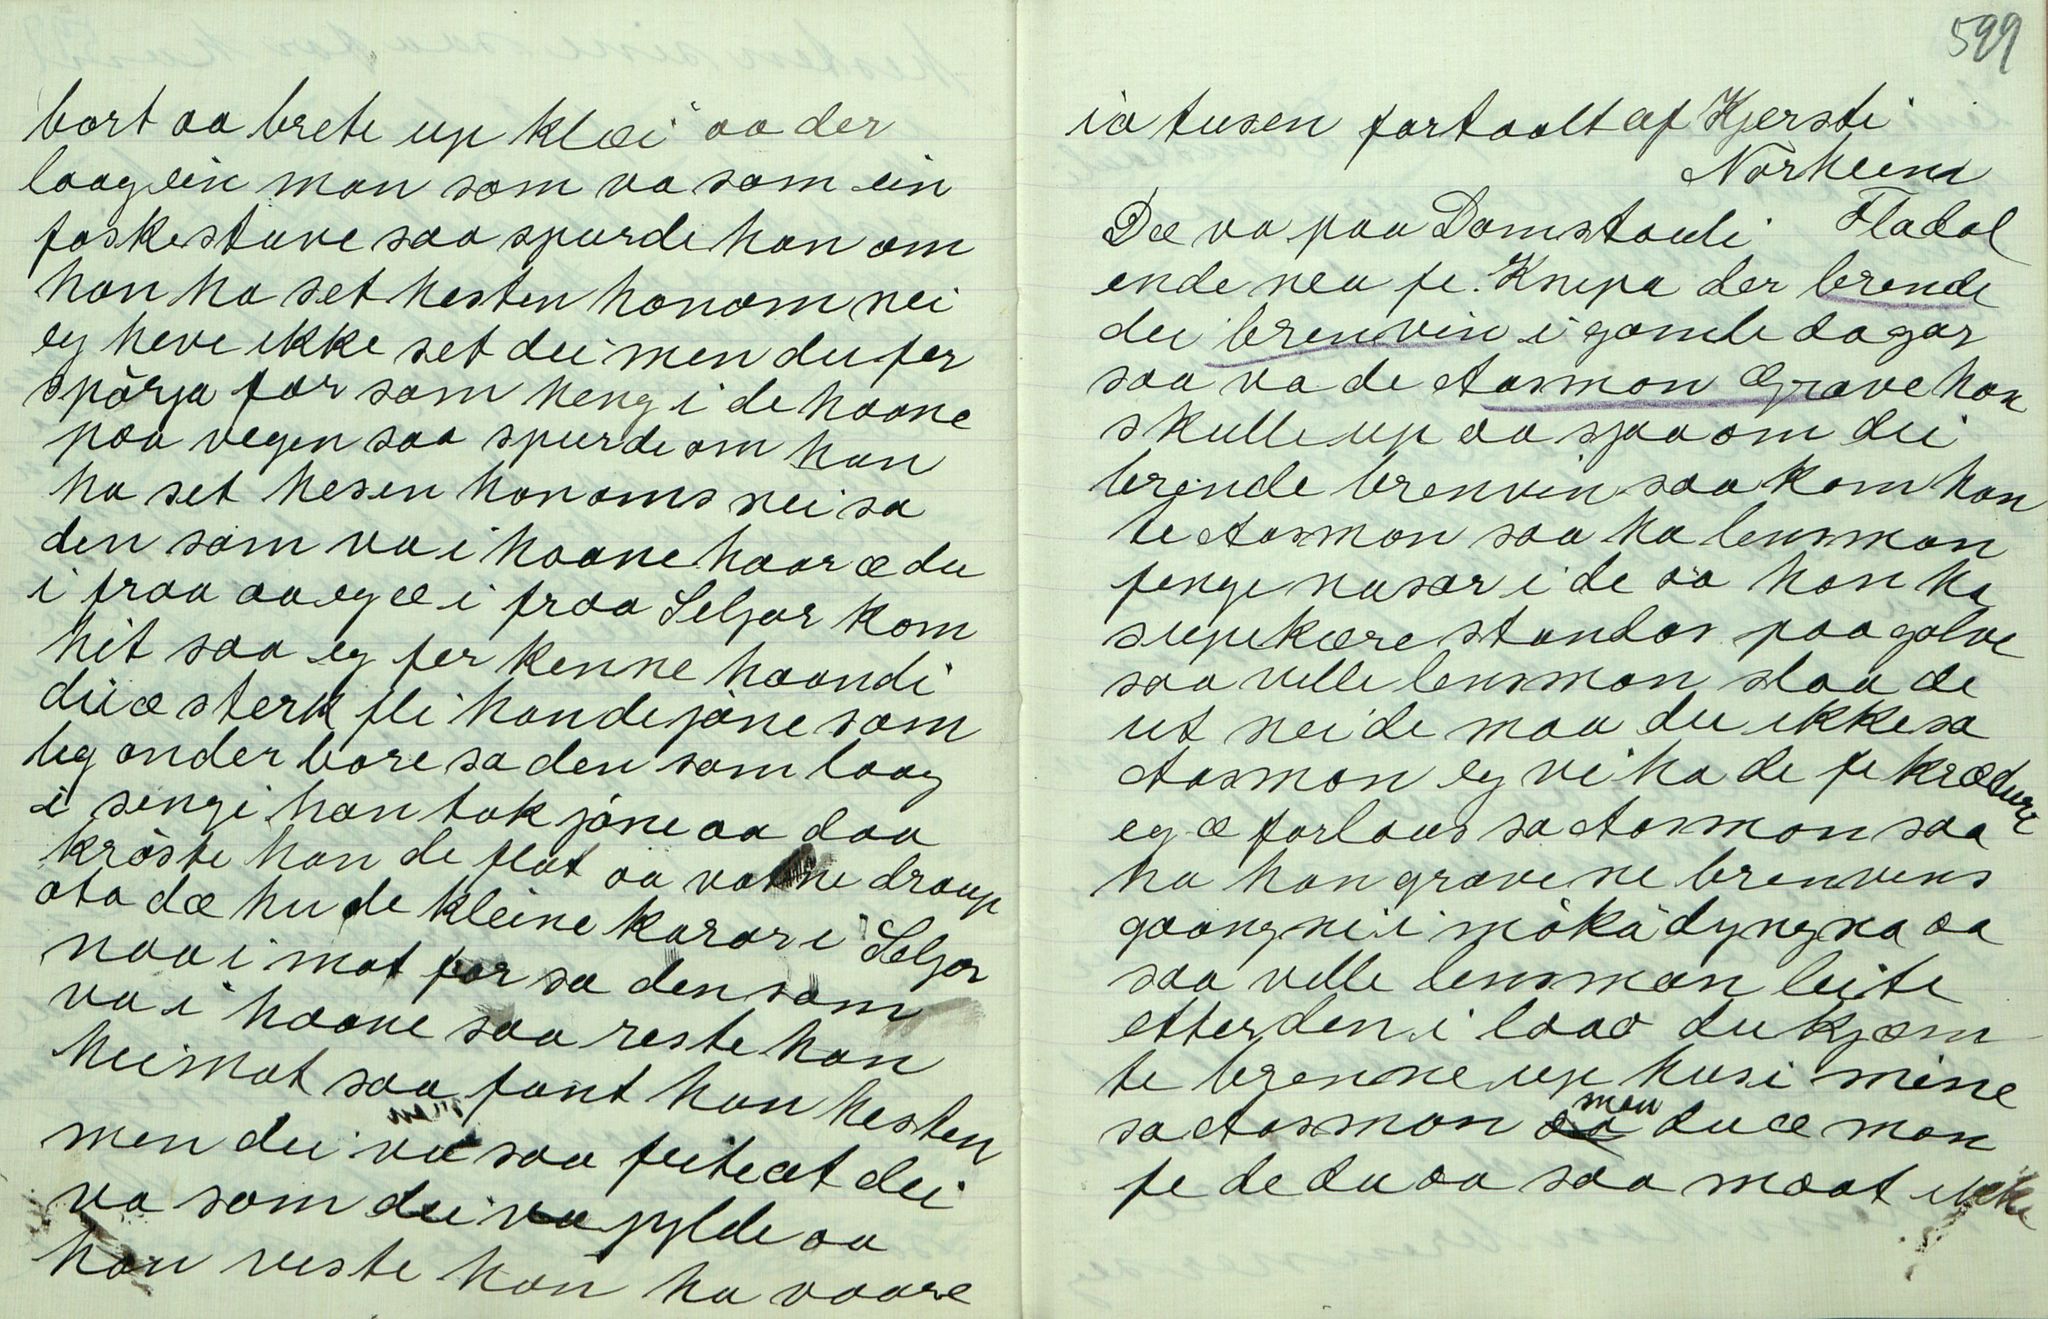 bort aa brete up klæi aa der
laag ein man som va som ein
foskestuve saa spurde han om
han ha set hesten honom nei
eg heve ikke set dei men du fer
spörja far som heng i de haane
paa vegen saa spurde om han
ha set hesen honoms nei sa
den som va i haane haar æ du
i fraa aa eg æ i fraa Seljor kom
hit saa eg fer kenne haandi
di æ sterk fli han de jöne som
lig onder bore sa den som laag
i sengi han tok jöne aa daa
kröste han de flat aa vatne draup
ota dæ hu de kleine karar i Seljor
naa i mot far sa den som
va i haane saa reste han
heimat saa fant han hesten
men dei va saa feite at dei
va som dei va fylde aa
han reste han ha vaare
599
ia tusen fortaalt af Kjersti
Norheim
Dæ va paa Domstauli Fladal
ende nea fe Knipa der brende
dei brenvin i gamle dagar
saa va de Aasmon Grave han
skulle up aa sjaa om dei
brende brenvin saa kom han
te Aasmon saa ha lensmon
fenge nusar i de aa han ha
supekære standar paa golve
saa ville lensmon slaa de
ut nei de maa du ikke sa
Aasmon eg vi ha de fe krædure
eg æ forlaus sa Aasmon saa
ha han grave ne brenvins
gaangnei i mökadyngna aa
saa ville lensman leite
etter den i laao du kjæm
te brenne up husi mine
sa Aasmon aa men du æ mon
fe de du aa saa maat ikke